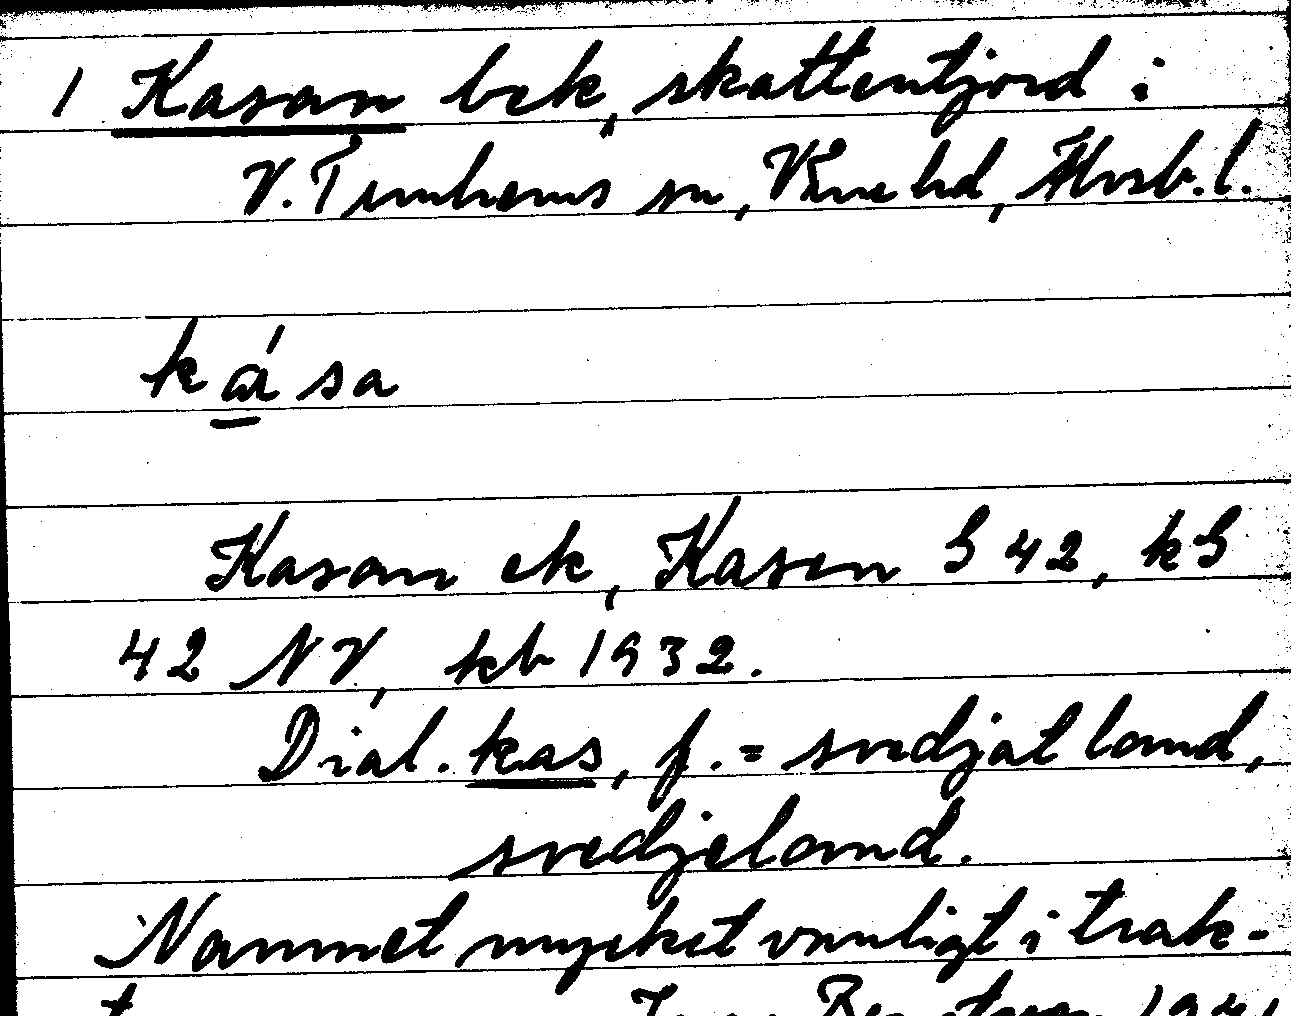 1 Kasan bek, skattentjord i
V. Tunhems sn, Väne hd, Älvsb. l.
ká̱sa
Kasan ek, Kasen G 42, kG
42 NV, kb 1932.
Dial. kas, f. = svedjat land,
svedjeland.
Namnet mycket vanligt i trak-